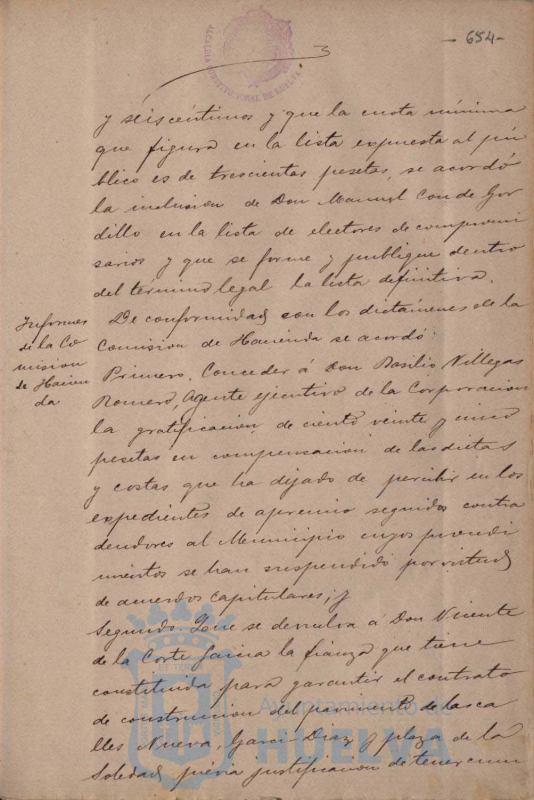 - 654 -
3
y seis céntimos y que la cuota mínima
que figura en la lista expuesta al pú-
blico es de trescientas pesetas, se acordó
la inclusion de Don Manuel Conde Gor
dillo en la lista de electores de compromi
sarios y que se forme y publique dentro
del término legal la lista definitiva.
Informes
de la Co
mision
de Hacien
da
De conformidad con los dictámenes de la
Comision de Hacienda se acordó:
Primero. Conceder á Don Basilio Villegas
Romero, Agente ejecutivo de la Corporacion
la gratificacion de ciento veinte y cinco
pesetas en compensacion de las dietas
y costas que ha dejado de percibir en los
expedientes de apremio seguidos contra
deudores al Municipio cuyos procedi
mientos se han suspendido por virtud
de acuerdos capitulares; y
Segundo. Que se devuelva á Don Vicente
de la Corte Garcia la fianza que tiene
constituida para garantir el contrato
de construccion del pavimento de las ca
lles Nueva, Garci-Diaz y plaza de la
Soledad, prévia justificacion de tener cum
Ayuntamiento de
HUELVA